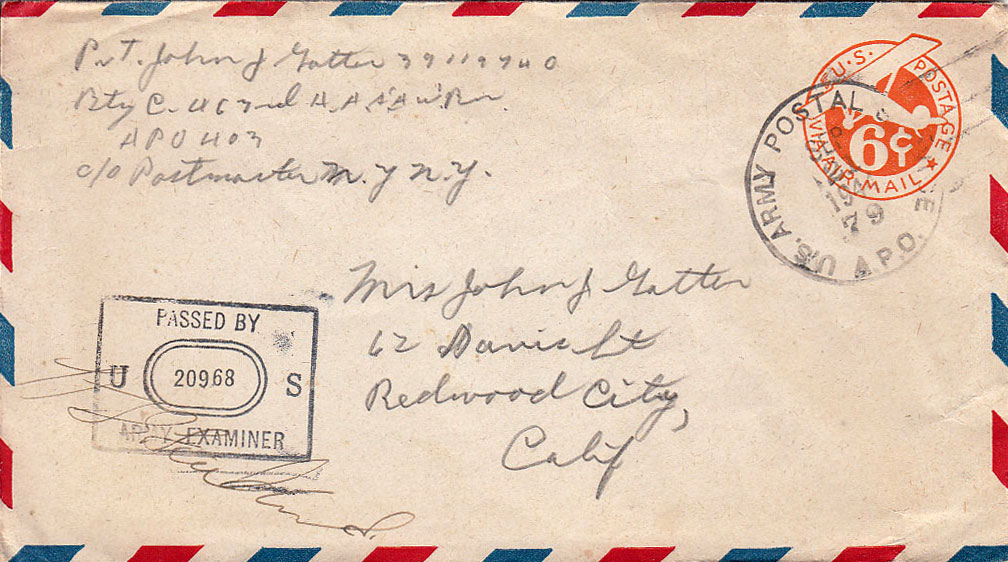 Pvt. John J Gatter 39119740
Bty C. 463rd A.A.A.
APO 403
c/o Postmaster N.Y N.Y.
U.S. POSTAGE
6¢
VIA AIR MAIL
U.S. ARMY POSTAL
A.P.O.
Mrs John J Gatter
62 Davis St
Redwood City,
Calif
PASSED BY
U 20968 S
ARMY EXAMINER